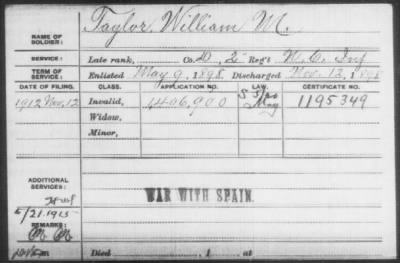 NAME OF SOLDIER: Taylor, William M.
SERVICE: Late rank, Co. D, 2 Reg't N. C. Inf
TERM OF SERVICE: Enlisted May 9, 1898, Discharged Nov. 12, 1898
DATE OF FILING. CLASS. APPLICATION NO. LAW. CERTIFICATE NO.
1912 Nov. 12 Invalid, 1406,900 May 1195349
Widow,
Minor,
ADDITIONAL SERVICES:
WAR WITH SPAIN.
5/21.1915
REMARKS:
Died , 1 , at